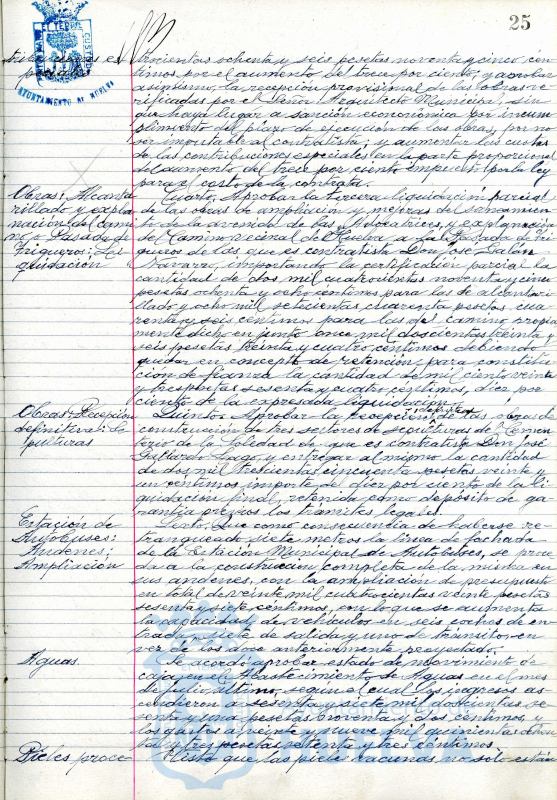 25
AYUNTAMIENTO DE HUELVA
trocientas ochenta y seis pesetas noventa y cinco cén-
timos por el aumento del trece por ciento, y aprobar
asimismo, la recepción provisional de las obras ve-
rificadas por el Señor Arquitecto Municipal, sin
que haya lugar a sanción económica por incum-
plimiento del plazo de ejecución de las obras, por no
ser imputable al contratista; y aumentar las cuotas
de las contribuciones especiales en la parte proporcional
del aumento del trece por ciento impuesto por la ley
para el costo de la contrata.
Obras: Alcanta-
rillado y expla-
nación del cami-
no a Posada de
Trigueros: Li-
quidación
Cuarto. Aprobar la tercera liquidación parcial
de las obras de ampliación y mejoras del saneamien-
to de la avenida de las Adoratrices, y explanación
de Camino vecinal de Huelva a La Posada de Tri-
gueros de las que es contratista Don José
Navarro, importando la certificación parcial la
cantidad de dos mil cuatrocientas noventa y cinco
pesetas ochenta y ocho céntimos para las de alcantari-
llado y ocho mil setecientas cuarenta pesetas cua-
renta y seis céntimos para las del camino propia-
mente dicho en junto once mil doscientas treinta y
seis pesetas treinta y cuatro céntimos debiendo
quedar en concepto de retención para constitu-
ción de fianza la cantidad de mil ciento veinte
y tres pesetas sesenta y cuatro céntimos, diez por
ciento de la expresada liquidación.
Obras: Recepción
definitiva: Se-
pulturas
Quinto. Aprobar la recepción definitiva de las obras de
construcción de tres sectores de sepulturas del Cemen-
terio de la Soledad de que es contratista Don José
Gallardo Lago y entregar al mismo la cantidad
de dos mil trecientas cincuenta pesetas veinte y
un céntimos importe del diez por ciento de la li-
quidación final, retenida como depósito de ga-
rantía previos los trámites legales.
Estación de
Autobuses:
Andenes:
Ampliación
Sexto. Que como consecuencia de haberse re-
tranqueado siete metros la línea de fachada
de la Estación Municipal de Autobuses, se proce-
da a la construcción completa de la misma en
sus andenes, con la ampliación de presupuesto
en total de veinte mil cuatrocientas veinte pesetas
sesenta y siete céntimos, con lo que se aumenta
la capacidad de vehículos en seis coches de en-
trada, siete de salida y uno de tránsito en
vez de los doce anteriormente proyectado.
Aguas
Se acordó aprobar estado de movimiento de
caja en el Abastecimiento de Aguas en el mes
de Julio último, según el cual los ingresos as-
cendieron a sesenta y siete mil doscientas se-
senta y una pesetas noventa y dos céntimos, y
los gastos a veinte y nueve mil quinientas ochen-
ta y tres pesetas setenta y tres céntimos.
Pieles proce-
Visto que las pieles vacunas no solo están